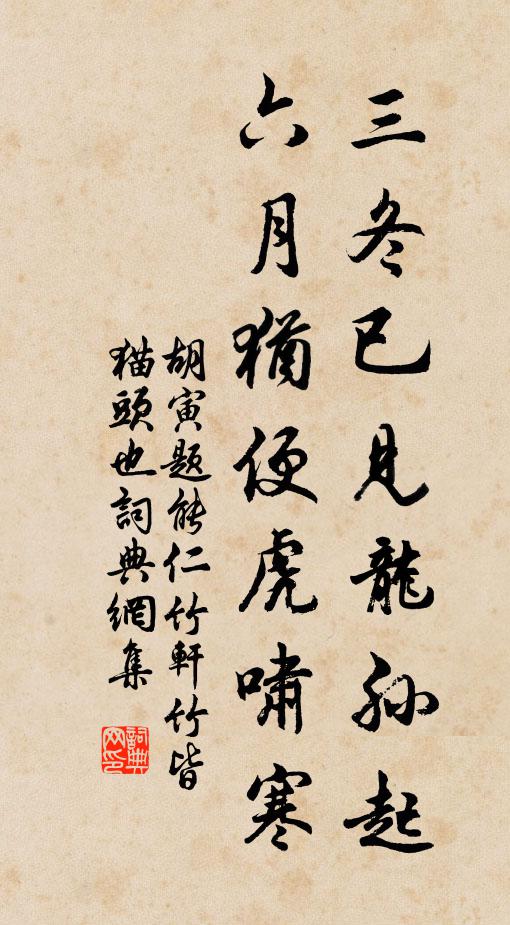 三冬已見龍孫起
六月猶便虎嘯寒
胡寅題能仁竹軒竹皆
猫頭也詞典網集
詞典网印